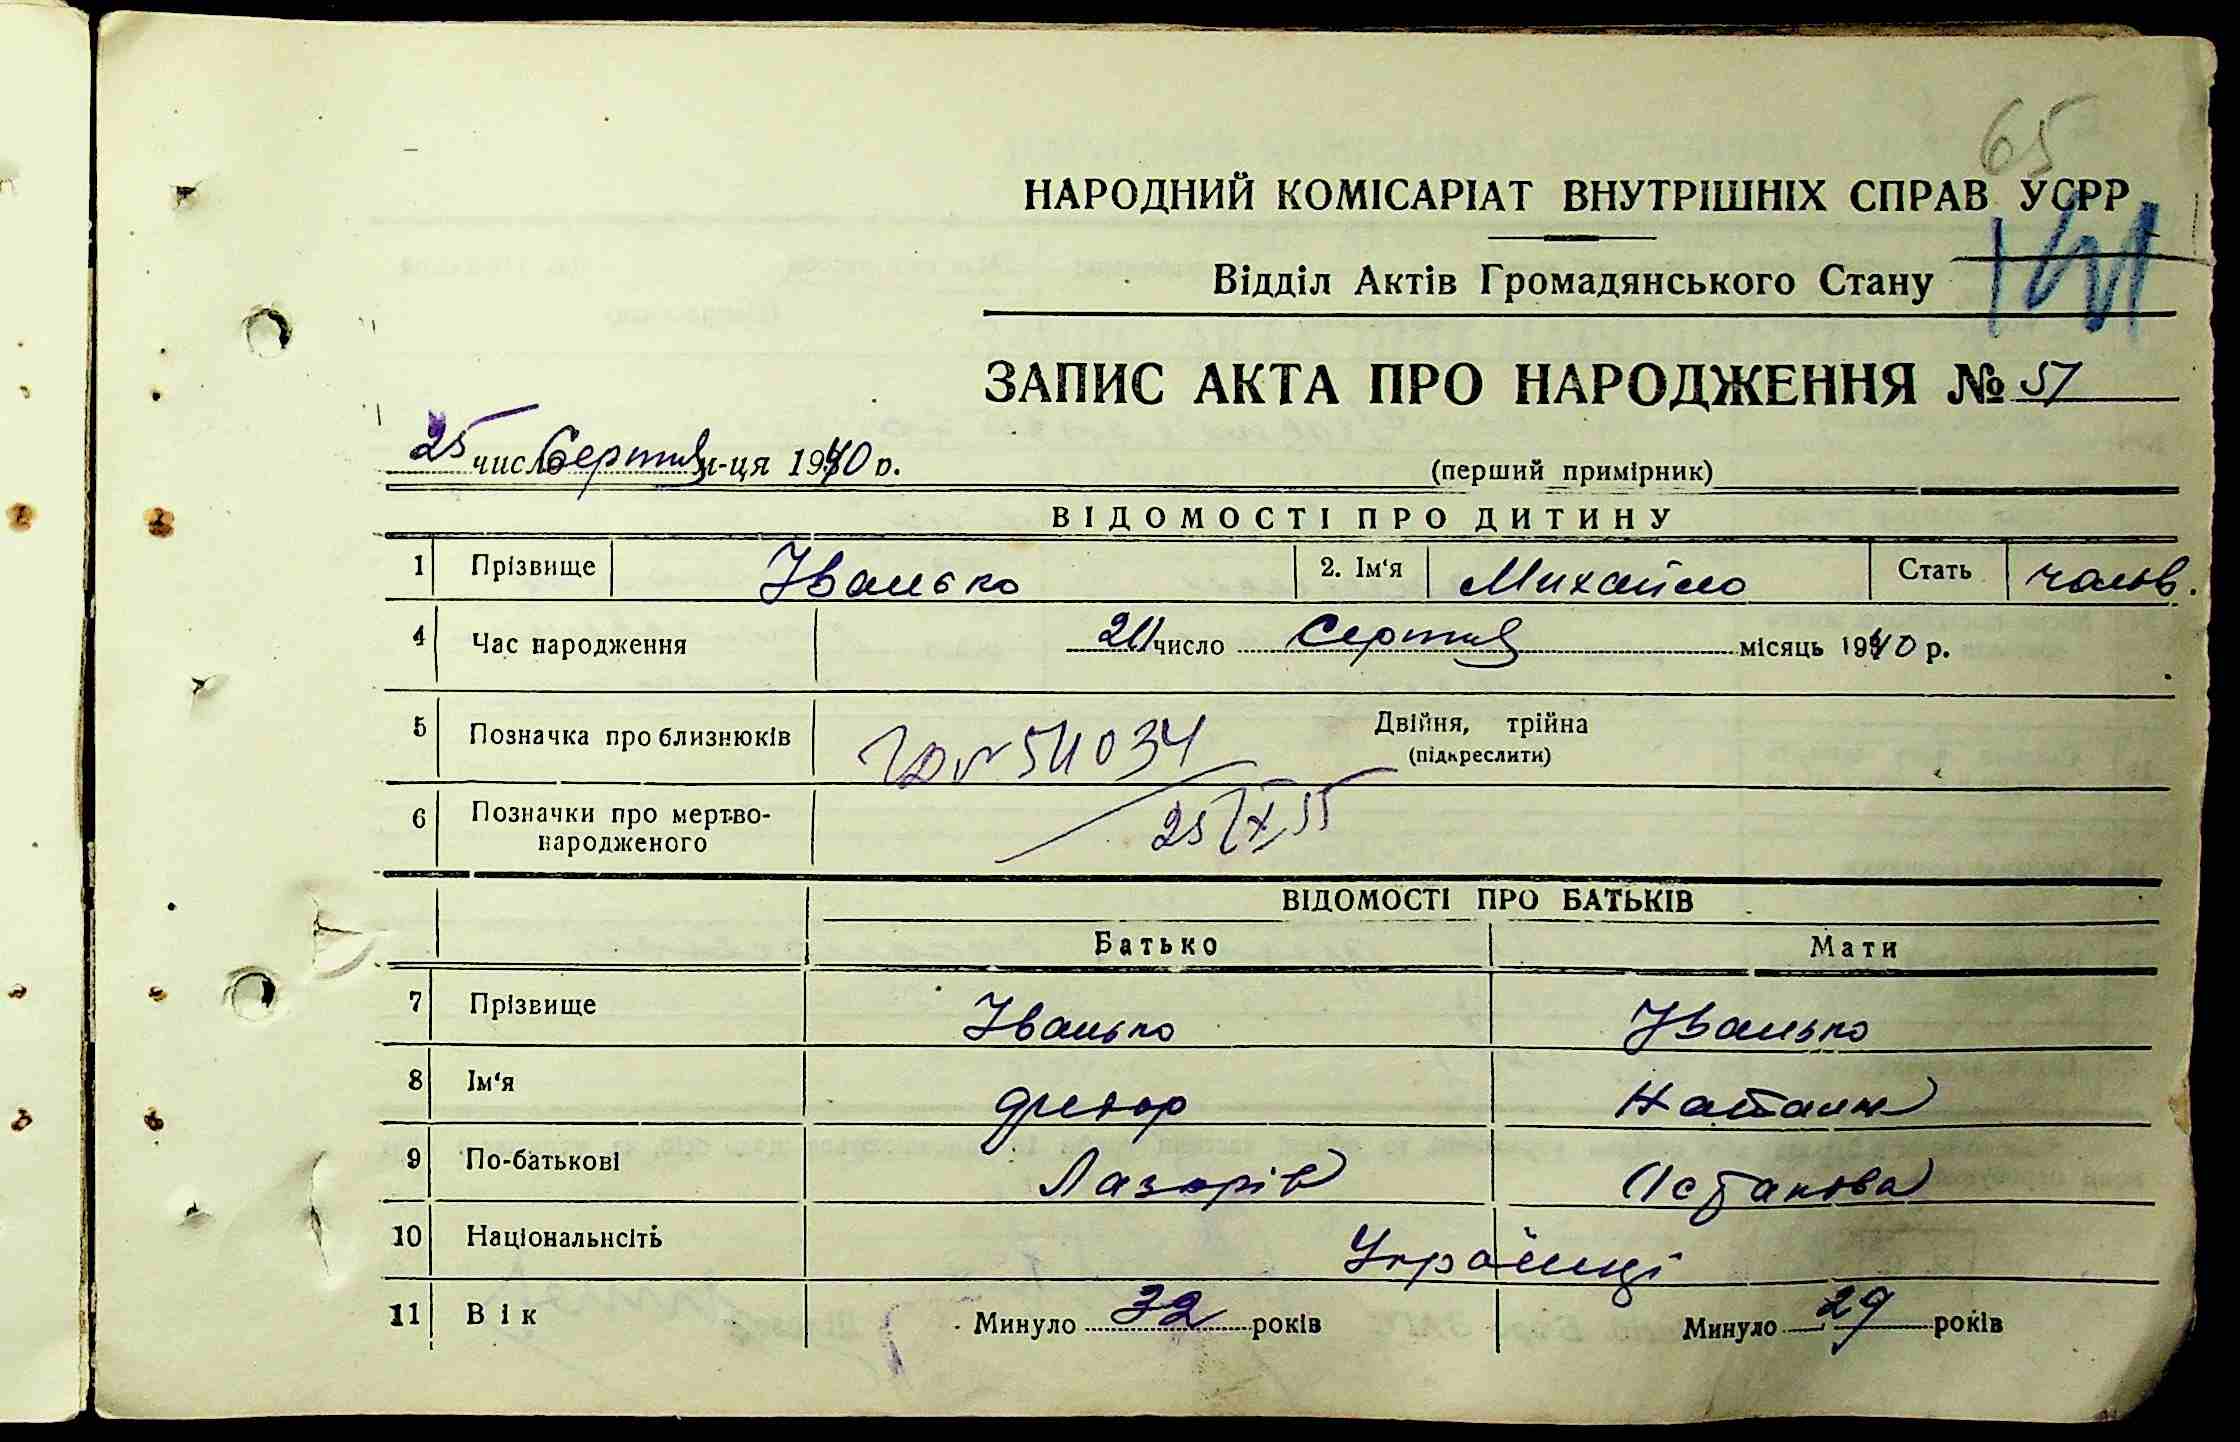 65
НАРОДНИЙ КОМІСАРІАТ ВНУТРІШНІХ СПРАВ УСРР
Відділ Актів Громадянського Стану
ЗАПИС АКТА ПРО НАРОДЖЕННЯ № 57
25 число Серпня м-ця 1940 р. (перший примірник)
ВІДОМОСТІ ПРО ДИТИНУ
1 Прізвище Іванько 2. Ім'я Михайло Стать чолов.
4 Час народження число Серпня місяць 1940 р.
5 Позначка про близнюків Двійня, трійна
(підкреслити)
6 Позначки про мертво-
народженого 25/X 55
ВІДОМОСТІ ПРО БАТЬКІВ
Батько Мати
7 Прізвище Іванько Іванько
8 Ім'я Федор Наталія
9 По-батькові Лазорів Остапова
10 Національнсіть Українці
11 Вік Минуло 32 років Минуло 29 років